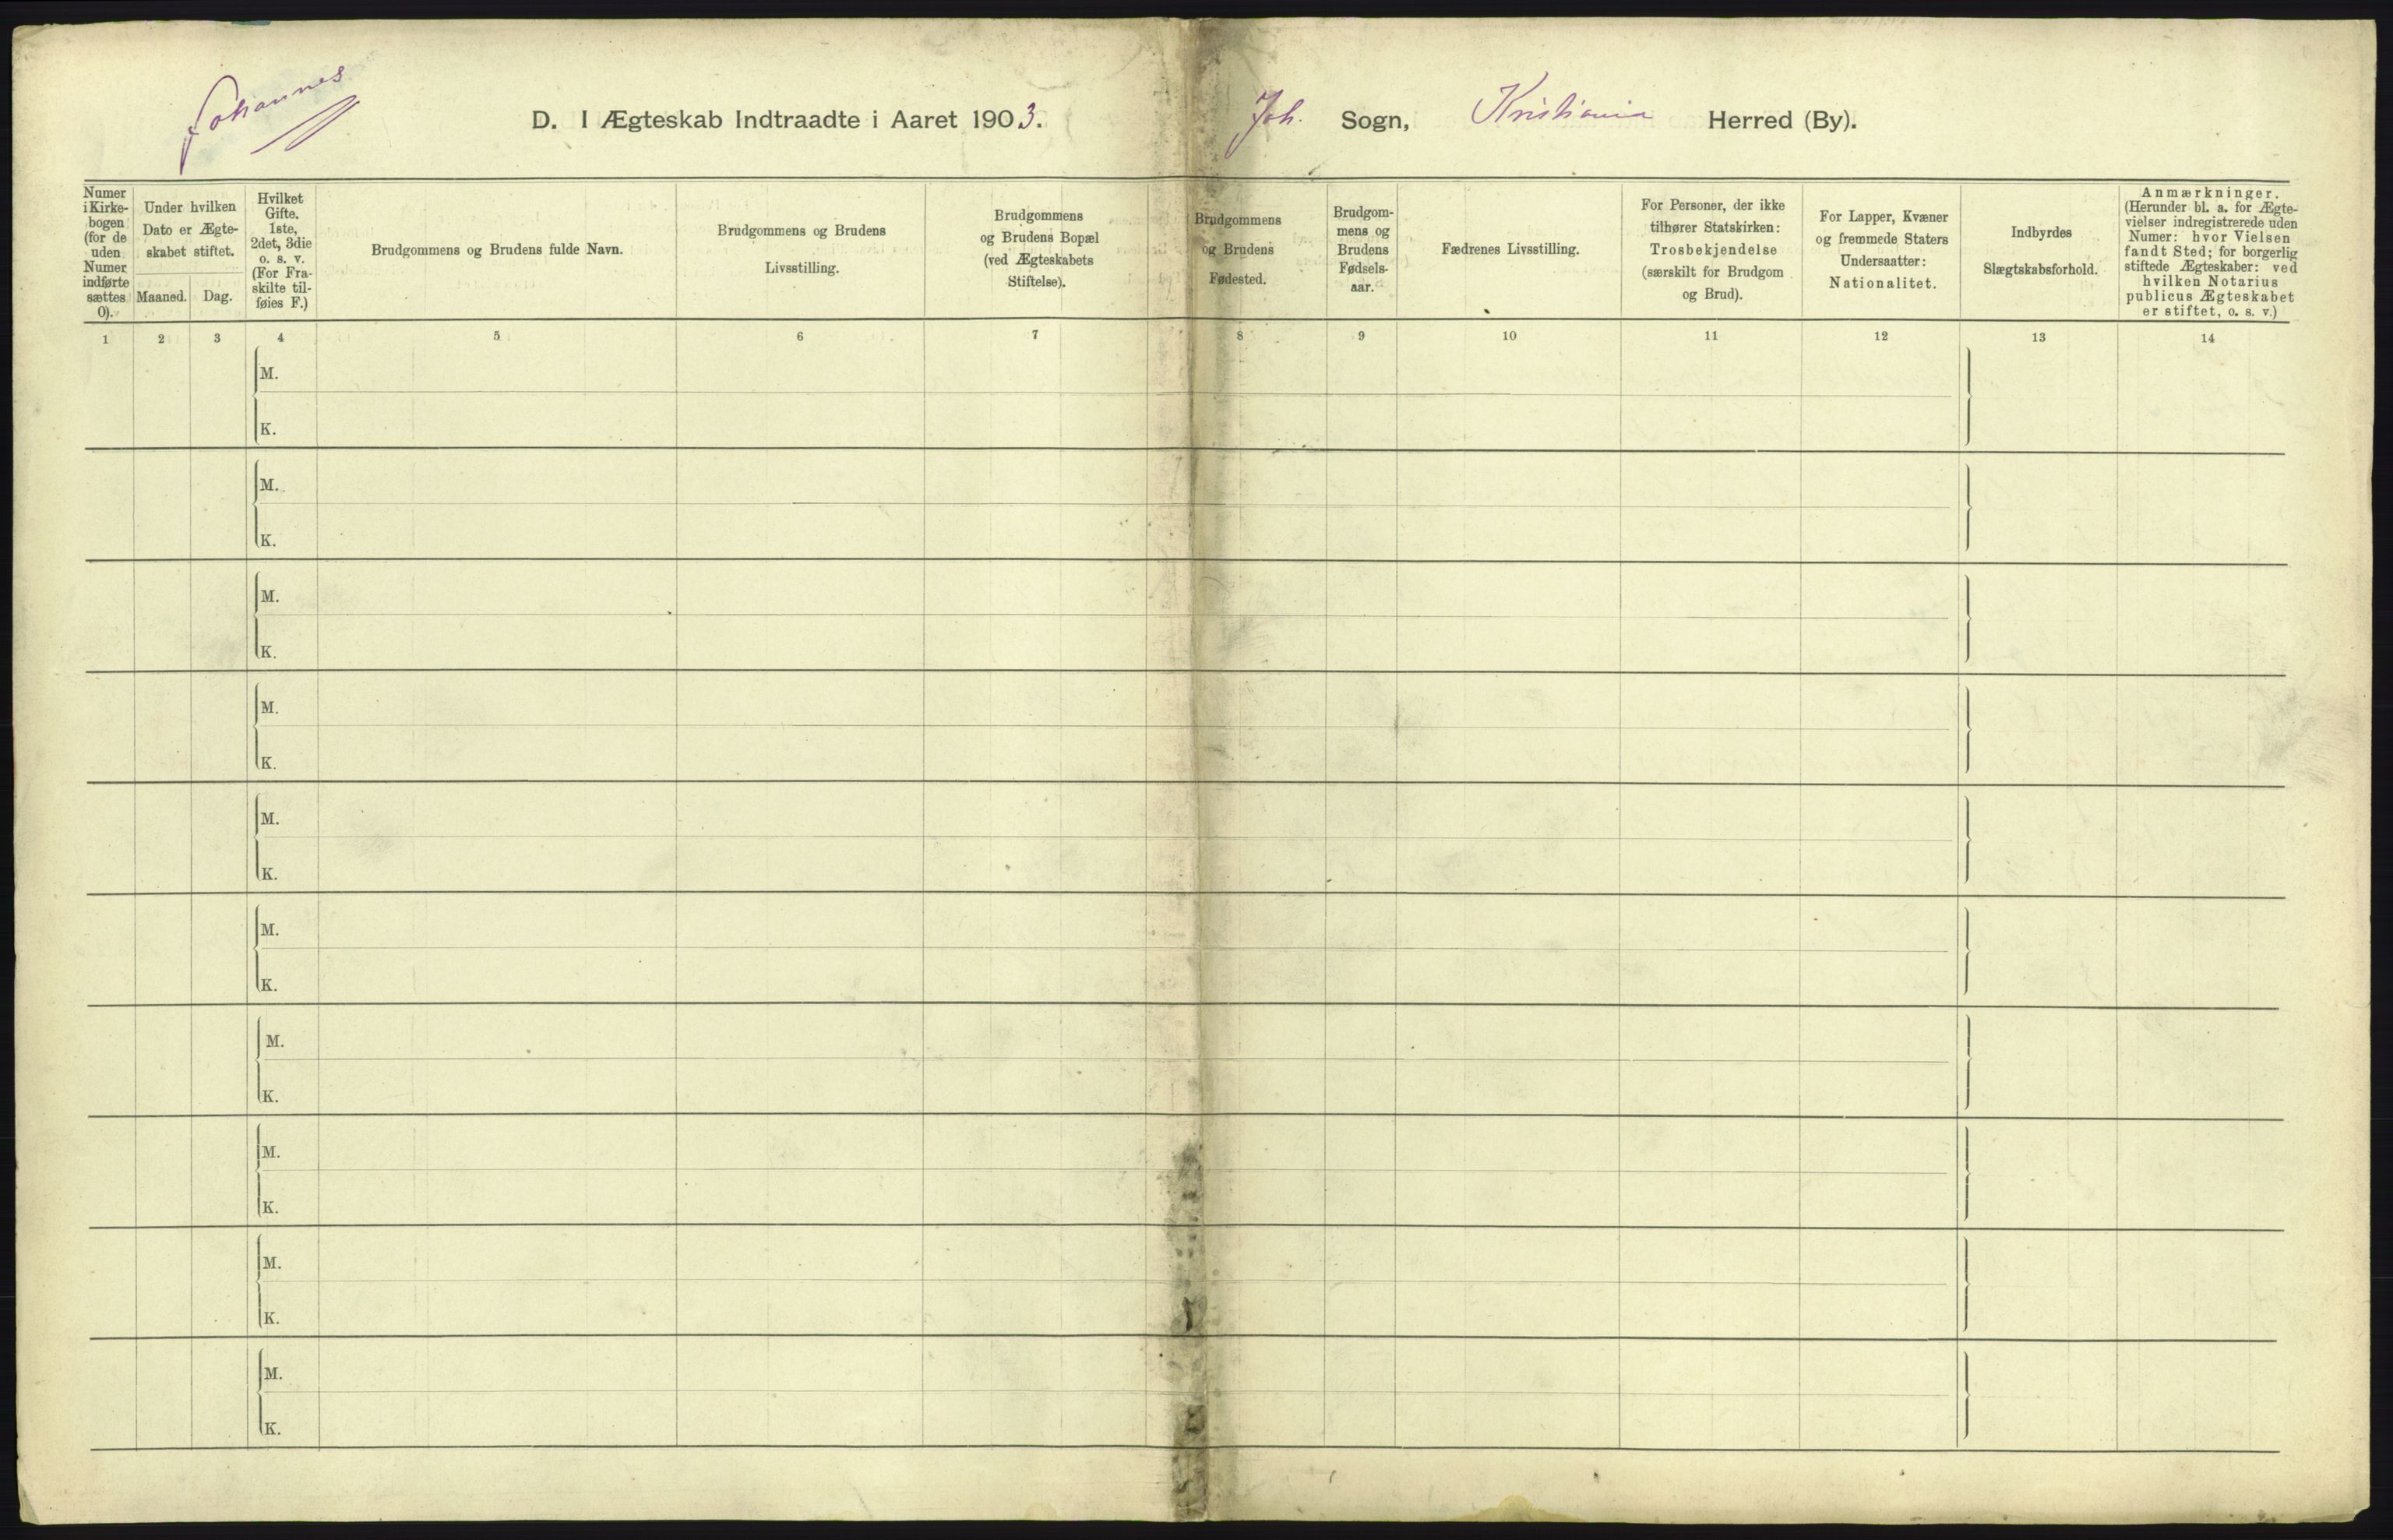 Johannes
D. I Ægteskab Indtraadte i Aaret 1903. Joh. Sogn, Kristiania Herred (By).
Numer
i Kirke-
bogen
(for de
uden
Numer
indførte
sættes
0).
Under hvilken
Dato er Ægte-
skabet stiftet.
Maaned. Dag.
Hvilket
Gifte.
1ste,
2det, 3die
o. s. v.
(For Fra-
skilte til-
føies F.)
Brudgommens og Brudens fulde Navn.
Brudgommens og Brudens
Livsstilling.
Brudgommens
og Brudens Bopæl
(ved Ægteskabets
Stiftelse).
Brudgommens
og Brudens
Fødested.
Brudgom-
mens og
Brudens
Fødsels-
aar.
Fædrenes Livsstilling.
For Personer, der ikke
tilhører Statskirken:
Trosbekjendelse
(særskilt for Brudgom
og Brud).
For Lapper, Kvæner
og fremmede Staters
Undersaatter:
Nationalitet.
Indbyrdes
Slægtskabsforhold.
Anmærkninger.
(Herunder bl. a. for Ægte-
vielser indregistrerede uden
Numer: hvor Vielsen
fandt Sted; for borgerlig
stiftede Ægteskaber: ved
hvilken Notarius
publicus Ægteskabet
er stiftet, o. s. v.)
1 2 3 4 5 6 7 8 9 10 11 12 13 14
M.
K.
M.
K.
M.
K.
M.
K.
M.
K.
M.
K.
M.
K.
M.
K.
M.
K.
M.
K.